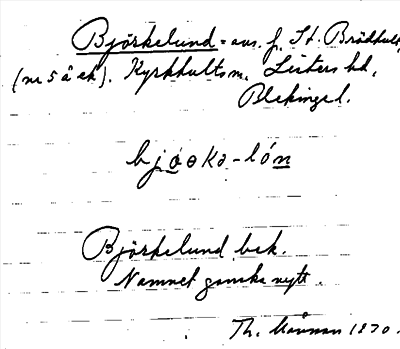 Björkelund = avs. f. St. Brödhult,
(nr 5 å ek). Kyrkhults sn. Listers hd,
Blekinge l.
bjɷka-lón
Björkelund bek.
Namnet ganska nytt.
Th. 1870.